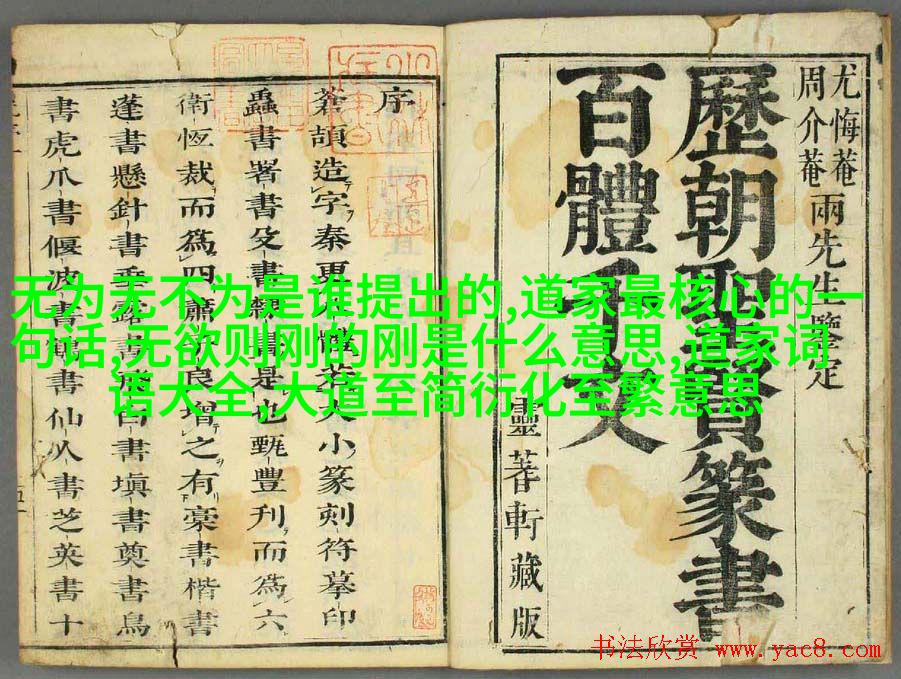 尤悔菴
周介菴
兩先生鑒定
歷朝聖賢篆書
百體千文
靈蓍軒藏版
序
蒼頡造字秦更大小篆刻符摹印
蟲書署書殳書是也甄豐刋而為六
衛恆裁而為四蕭良增之有稾書楷書
蓬書懸針書垂露書白書塡書奠書鳥
書虎爪書偃波書書仙人書芝英書十
无为无不为是谁提出的,道家最核心的一
句话,无欲则刚的刚是什么意思,道家词
语大全,大道至简衍化至繁意思
书法欣赏 www.yac8.com